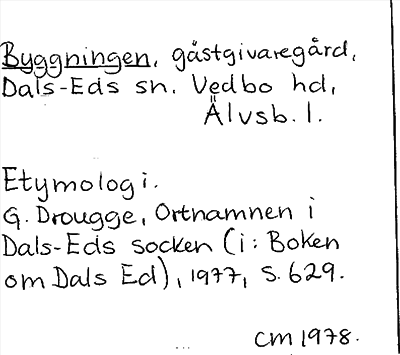 Byggningen, gästgivaregård,
Dals-Eds sn. Vedbo hd,
Älvsb. l.
Etymologi.
G. Drougge, Ortnamnen i
Dals-Eds socken (i: Boken
om Dals Ed), 1977, s. 629.
CM 1978.